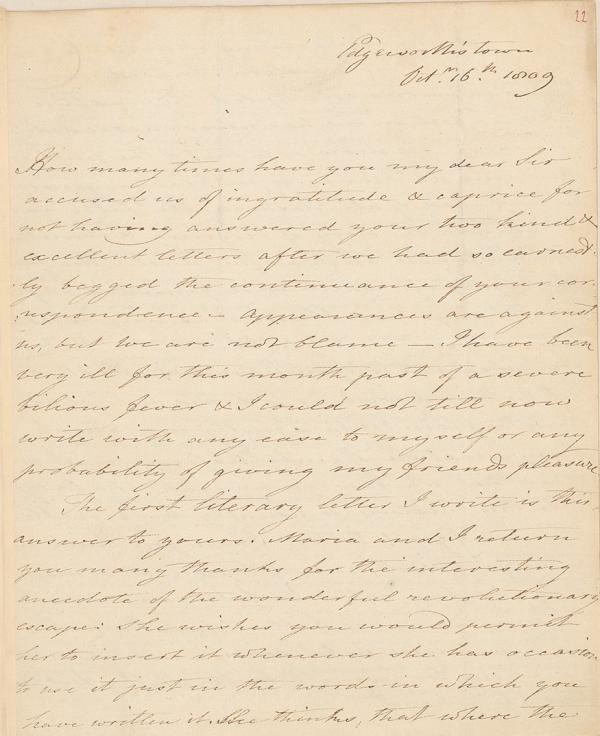 22
Edgeworthstown
Oct.r 16.th 1809
How many times have you my dear Sir
accused us of ingratitude & caprice for
not having answered your two kind &
excellent letters after we had so earnest
ly begged the continuance of your cor
respondence – appearances are against
us, but we are not blame — I have been
very ill for this month past of a severe
bilious fever & I could not till now
write with any ease to myself or any
probability of giving my friends pleasure
The first literary letter I write is this
answer to yours. Maria and I return
you many thanks for the interesting
anecdote of the wonderful revolutionary
escape: She wishes you would permit
her to insert it whenever she has occasion
to use it just in the words in which you
have written it. She thinks, that where the